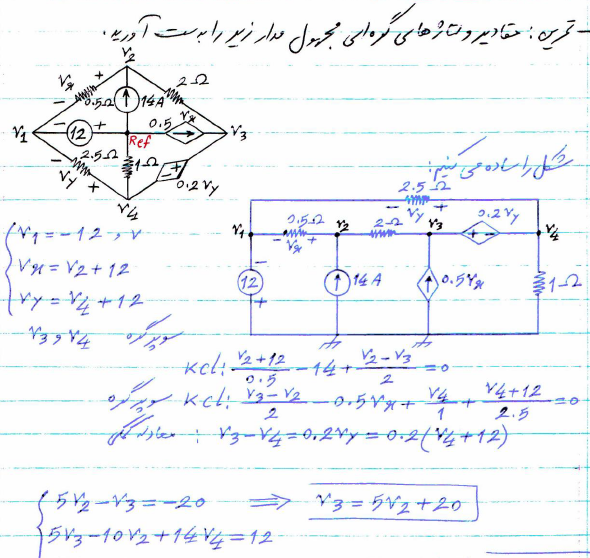 تمرین: مقادیر ولتاژهای گره‌ای مجهول مدار زیر را بدست آورید.
v2
vx
+
−
0.5Ω
14A
2Ω
0.5 vx
v1
−
12
+
Ref
v3
2.5Ω
1Ω
−
vy
+
0.2vy
v4
شکل را ساده می کنیم:
2.5Ω
− vy +
v1
0.5Ω
− vx +
v2
2Ω
v3
0.2vy
+ −
v4
−
12
+
14A
0.5vx
1Ω
v1 = -12 , v
vx = v2 + 12
vy = v4 + 12
v3 و v4 سوپر گره
KCL: (v2+12)/0.5 - 14 + (v2-v3)/2 = 0
سوپر گره KCL: (v3-v2)/2 - 0.5vx + v4/1 + (v4+12)/2.5 = 0
: v3-v4 = 0.2vy = 0.2(v4+12)
5v2-v3 = -20 ⟹ v3 = 5v2+20
5v3-10v2+14v4 = 12